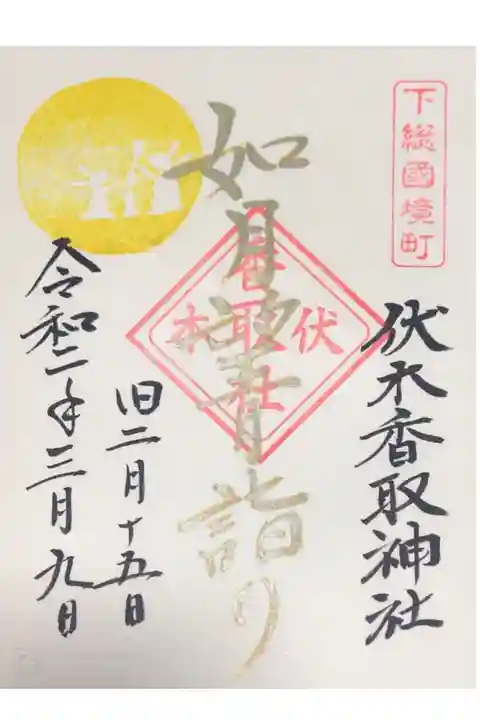 下総國境町
伏木香取神社
伏木
香取社
如月満月詣り
旧二月十五日
令和二年三月九日